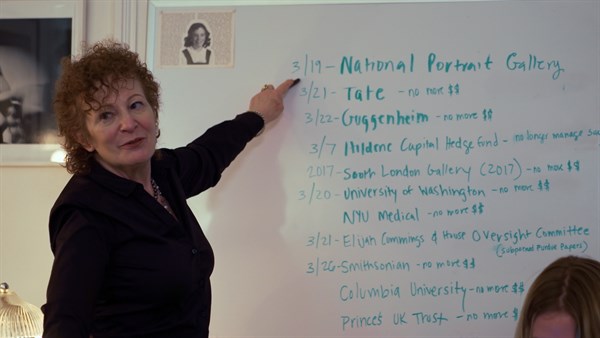 3/19 - National Portrait Gallery
3/21 - Tate - no more $$
3/22 - Guggenheim - no more $$
3/7 Hildene Capital Hedge fund - no longer manage
2017 - South London Gallery (2017) - no more $$
3/20 - University of Washington - no more $$
NYU Medical - no more $$
3/21 - Elijah Cummings & House Oversight Committee
(Subpoenaed Purdue Papers)
3/26 - Smithsonian - no more $$
Columbia University - no more $$
Prince's UK Trust - no more $